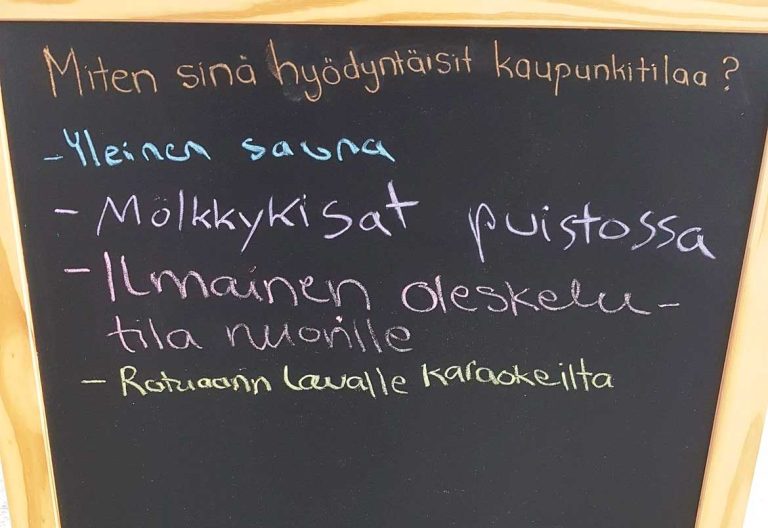 Miten sinä hyödyntäisit kaupunkitilaa?
- Yleinen sauna
- Mölkkykisat puistossa
- Ilmainen oleskelu-
tila nuorille
- Rotuaarin lavalle karaokeilta